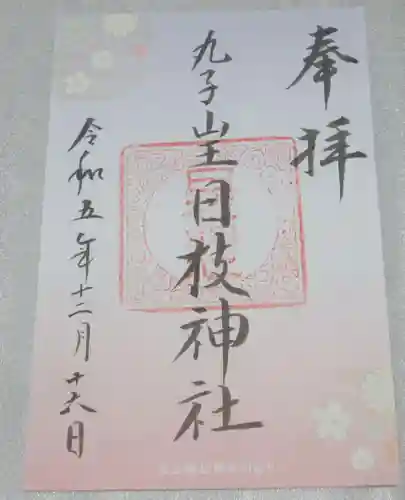 奉拝
丸子山王日枝神社
令和五年十二月十六日